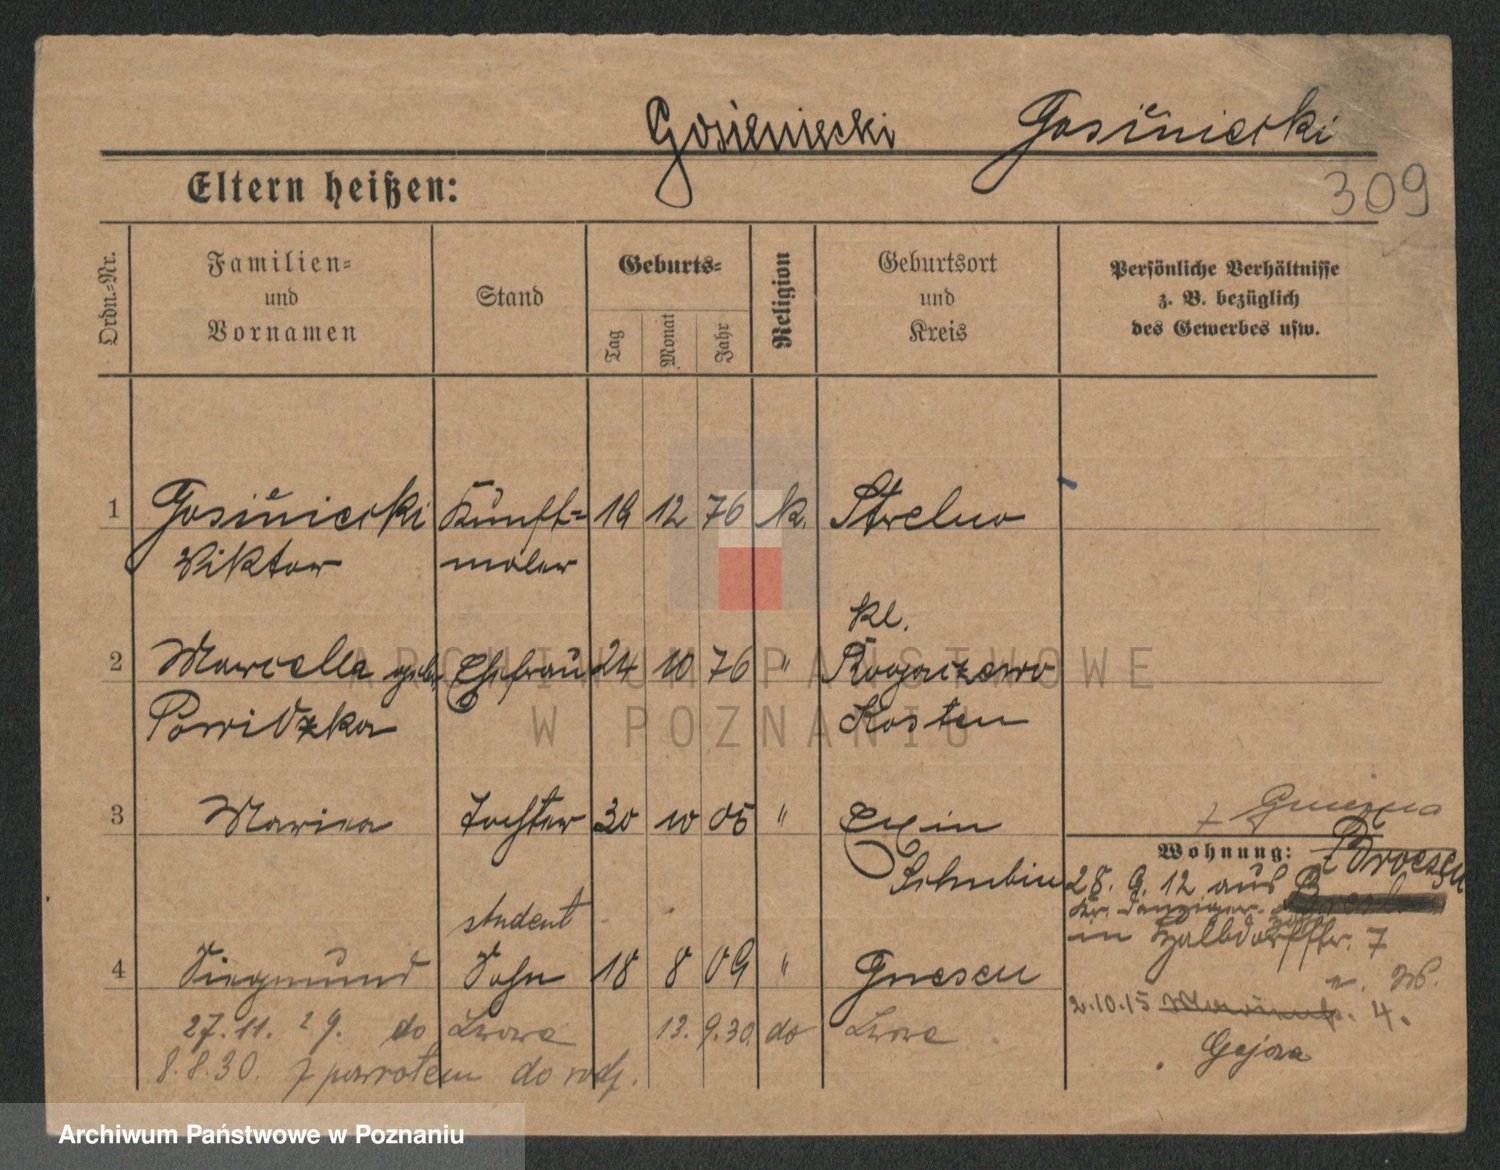 Gosieniecki Gosieniecki
309
Eltern heißen:
Ordn.-Nr.
Familien-
und
Vornamen
Stand
Geburts-
Tag
Monat
Jahr
Religion
Geburtsort
und
Kreis
Persönliche Verhältnisse
z. B. bezüglich
des Gewerbes usw.
1 Gosieniecki Kunst- 19 12 76 k. Strelno
Viktor maler
kl.
2 Marcella geb. Ehefrau 24 10 76 " Rogaczewo
Powidzka Kosten
3 Marina Tochter 30 10 05 " Exin
Schubin
student
4 Siegmund Sohn 18 8 09 " Gnesen
27.11.29. do Lwowa 13.9.30 do Lwowa
8.8.30. z powrotem do rodz.
z Gniezna
Wohnung:
28. 9. 12 aus
in Halbdorfstr. 7
2.10.15 4.
Gajowa
ARCHIWUM PAŃSTWOWE
W POZNANIU
Archiwum Państwowe w Poznaniu